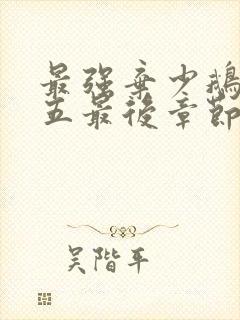 最强弃少鹅
五最後章節
吴階平